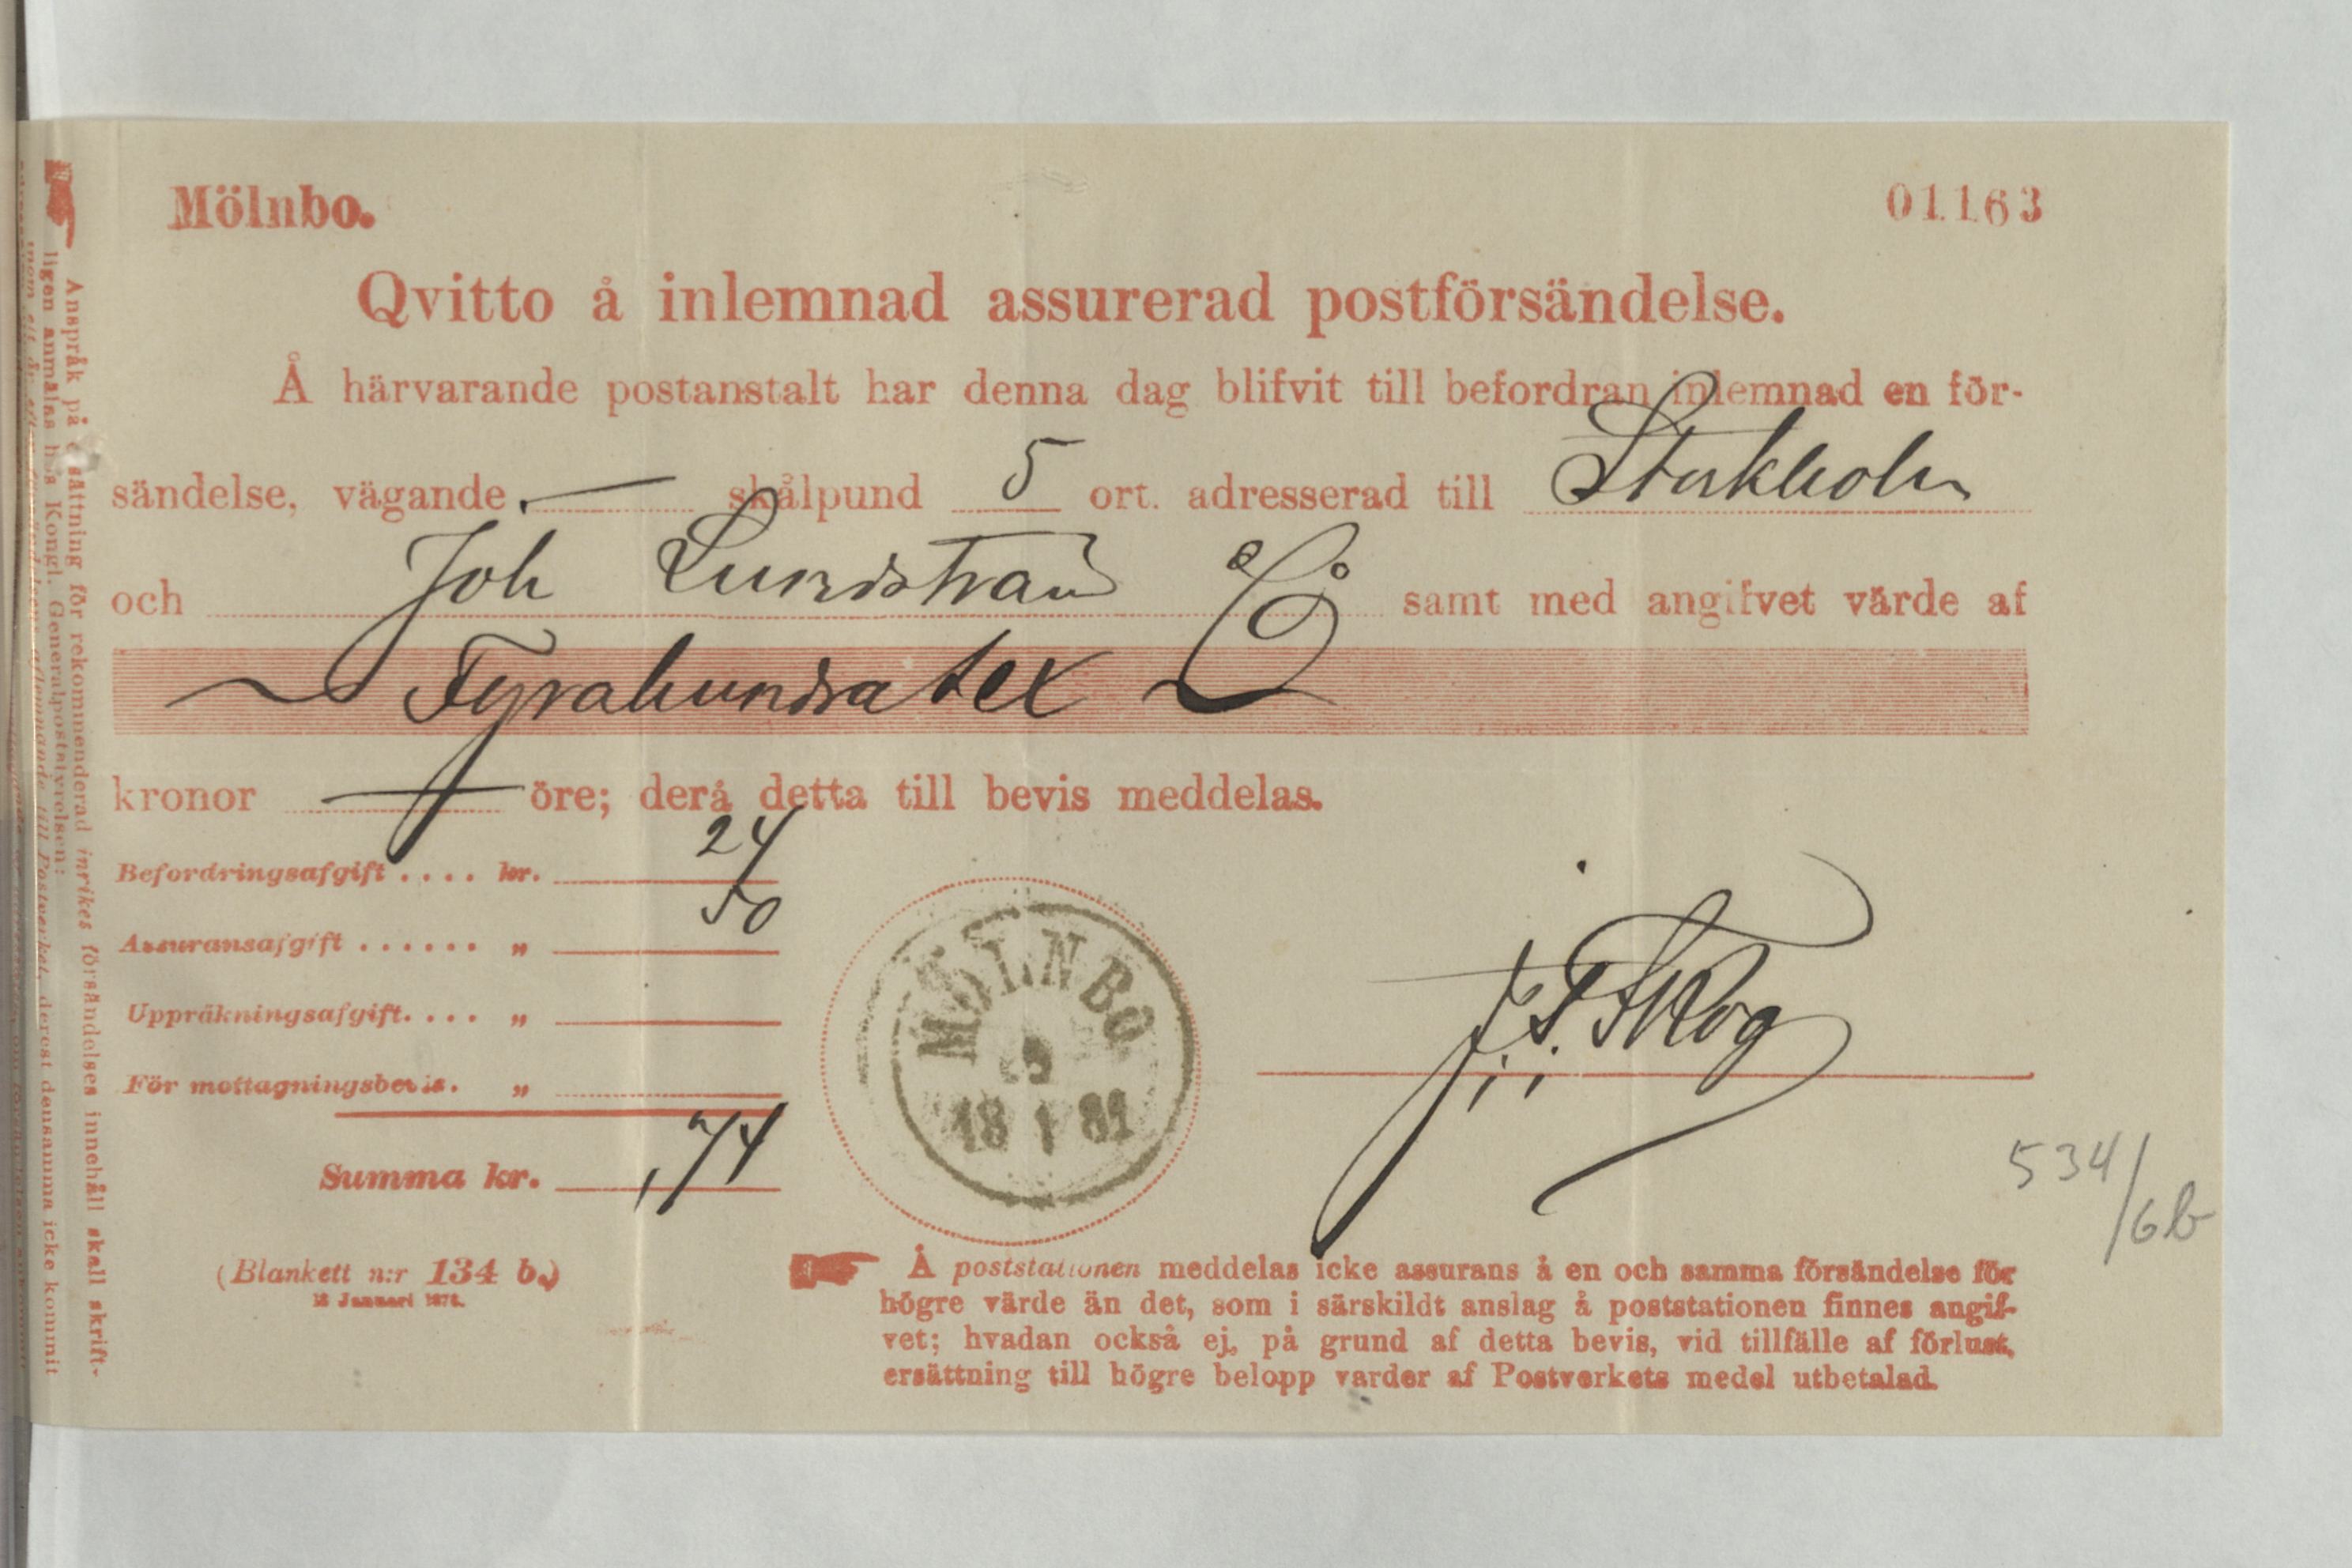 Mölnbo.
01163
Qvitto å inlemnad assurerad postförsändelse.
Å härvarande postanstalt har denna dag blifvit till befordran inlemnad en för-
sändelse, vägande — skålpund 5 ort. adresserad till Stockholm
och Joh Lundström & Co samt med angifvet värde af
Fyrahundra
kronor — öre; derå detta till bevis meddelas.
Befordringsafgift .... kr. 24
Assuransafgift ...... „ 50
Uppräkningsafgift. ... „
För mottagningsbevis. „
Summa kr. ,74
MÖLNBO
18 1 81
Skog
534/6b
(Blankett n:r 134 b.)
Å poststationen meddelas icke assurans å en och samma försändelse för
högre värde än det, som i särskildt anslag å poststationen finnes angif-
vet; hvadan också ej, på grund af detta bevis, vid tillfälle af förlust,
ersättning till högre belopp varder af Postverkets medel utbetalad.
Anspråk på ersättning för rekommenderad inrikes försändelses innehåll skall skrift-
ligen anmälas hos Kongl. Generalpoststyrelsen: